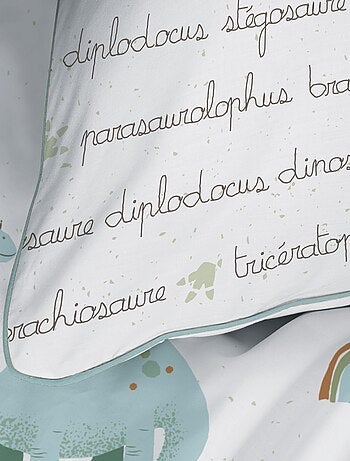 diplodocus stégosaure
parasaurolophus bra
saure diplodocus dinos
brachiosaure tricératop